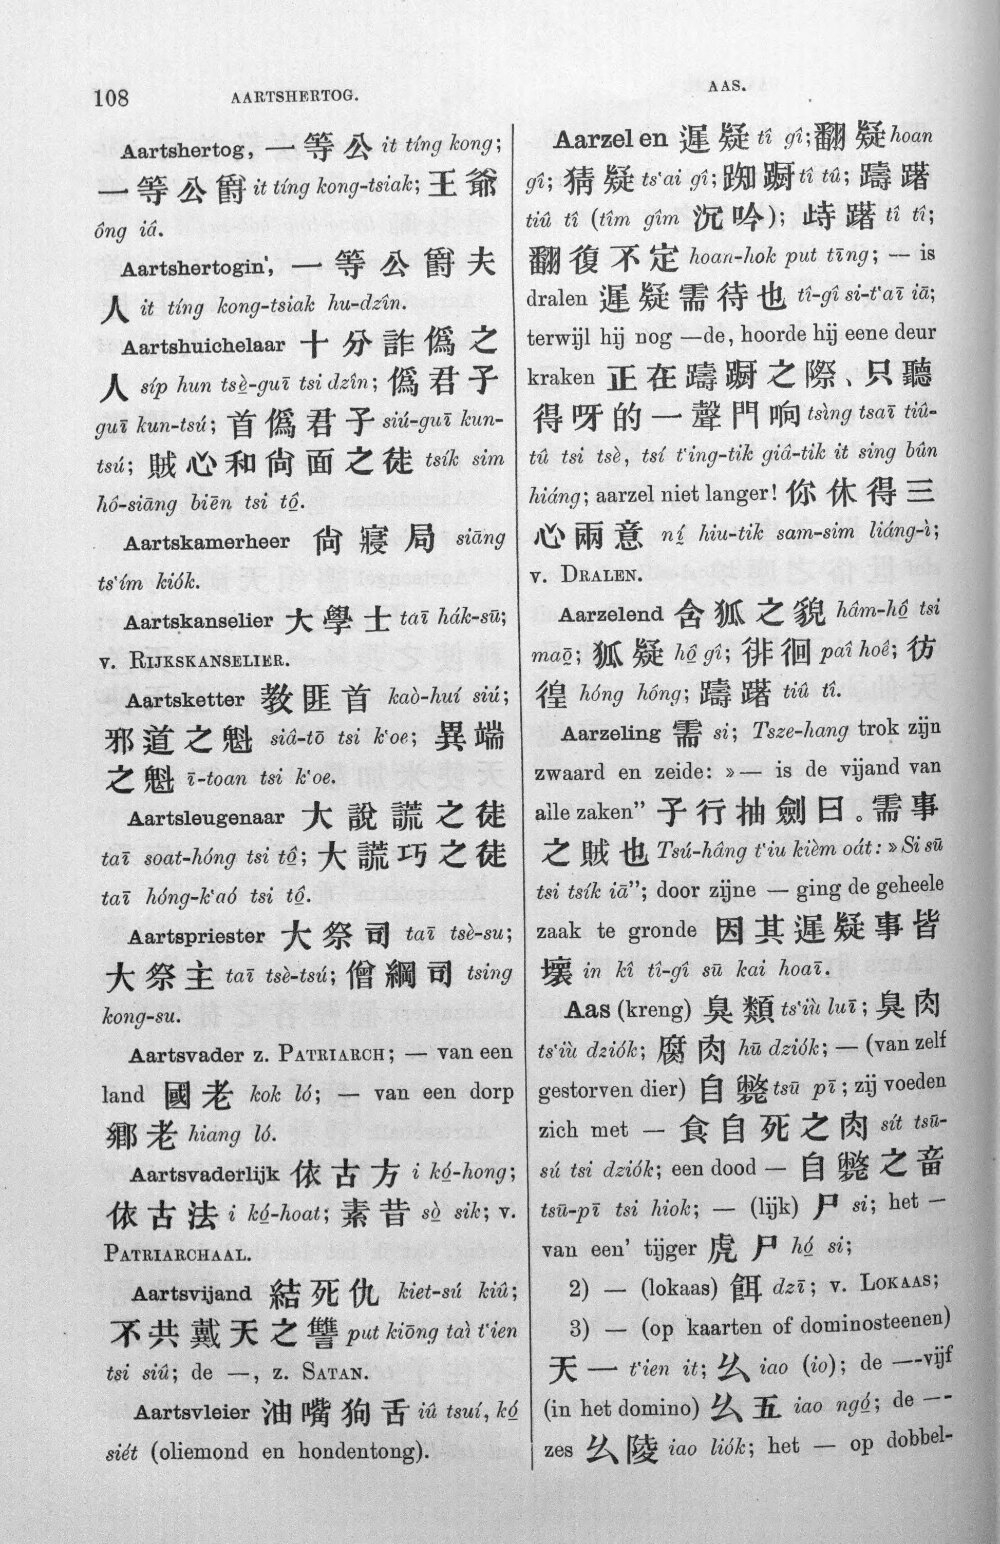 108
AARTSHERTOG.
AAS.
Aartshertog, 一等公 it tíng kong;
一等公爵 it tíng kong-tsiak; 王爺
ông iâ.
Aartshertogin', 一等公爵夫
人 it tíng kong-tsiak hu-dzîn.
Aartshuichelaar 十分詐僞之
人 síp hun tsè̱-guī tsi dzîn; 僞君子
guī kun-tsú; 首僞君子 siú-guī kun-
tsú; 賊心和尙面之徒 tsík sim
hô-siāng biēn tsi tô̱.
Aartskamerheer 尙寢局 siāng
ts'ím kiók.
Aartskanselier 大學士 taī hák-sū;
v. RIJKSKANSELIER.
Aartsketter 教匪首 kaò-huí siú;
邪道之魁 siâ-tō tsi k'oe; 異端
之魁 ī-toan tsi k'oe.
Aartsleugenaar 大說謊之徒
taī soat-hóng tsi tô̱; 大謊巧之徒
taī hóng-k'aó tsi tô̱.
Aartspriester 大祭司 taī tsè-su;
大祭主 taī tsè-tsú; 僧綱司 tsing
kong-su.
Aartsvader z. PATRIARCH; — van een
land 國老 kok ló; — van een dorp
鄉老 hiang ló.
Aartsvaderlijk 依古方 i kó̱-hong;
依古法 i kó̱-hoat; 素昔 sò̱ sik; v.
PATRIARCHAAL.
Aartsvijand 結死仇 kiet-sú kiû;
不共戴天之讐 put kiōng taì t'ien
tsi siû; de —, z. SATAN.
Aartsvleier 油嘴狗舌 iû tsuí, kó̱
siét (oliemond en hondentong).
Aarzelen 遲疑 tî gî; 翻疑 hoan
gî; 猜疑 ts'ai gî; 踟躕 tî tû; 躊躇
tiû tî (tîm gîm 沉吟); 峙躇 tî tî;
翻復不定 hoan-hok put tīng; — is
dralen 遲疑需待也 tî-gî si-t'aī iā;
terwijl hij nog —de, hoorde hij eene deur
kraken 正在躊躕之際、只聽
得呀的一聲門响 tsìng tsaī tiû-
tû tsi tsè, tsí t'ing-tik giâ-tik it sing bûn
hiáng; aarzel niet langer! 你休得三
心兩意 ní̱ hiu-tik sam-sim liáng-ì;
v. DRALEN.
Aarzelend 含狐之貌 hâm-hô̱ tsi
maō̱; 狐疑 hô̱ gî; 徘徊 paî hoê; 彷
徨 hóng hông; 躊躇 tiû tî.
Aarzeling 需 si; Tsze-hang trok zijn
zwaard en zeide: »— is de vijand van
alle zaken” 子行抽劍曰。需事
之賊也 Tsú-hâng t'iu kièm oát: »Si sū
tsi tsík iā”; door zijne — ging de geheele
zaak te gronde 因其遲疑事皆
壞 in kî tî-gî sū kai hoaī.
Aas (kreng) 臭類 ts'iù luī; 臭肉
ts'iù dziók; 腐肉 hū dziók; — (van zelf
gestorven dier) 自斃 tsū pī; zij voeden
zich met — 食自死之肉 sít tsū-
sú tsi dziók; een dood — 自斃之畜
tsū-pī tsi hiok; — (lijk) 尸 si; het —
van een' tijger 虎尸 hó̱ si;
2) — (lokaas) 餌 dzī; v. LOKAAS;
3) — (op kaarten of dominosteenen)
天一 t'ien it; 幺 iao (io); de —-vijf
(in het domino) 幺五 iao ngó̱; de —-
zes 幺陵 iao liók; het — op dobbel-